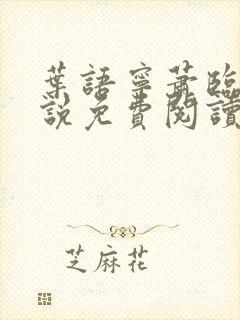 葉語寧蕭臨
說免費閱讀
芝麻花